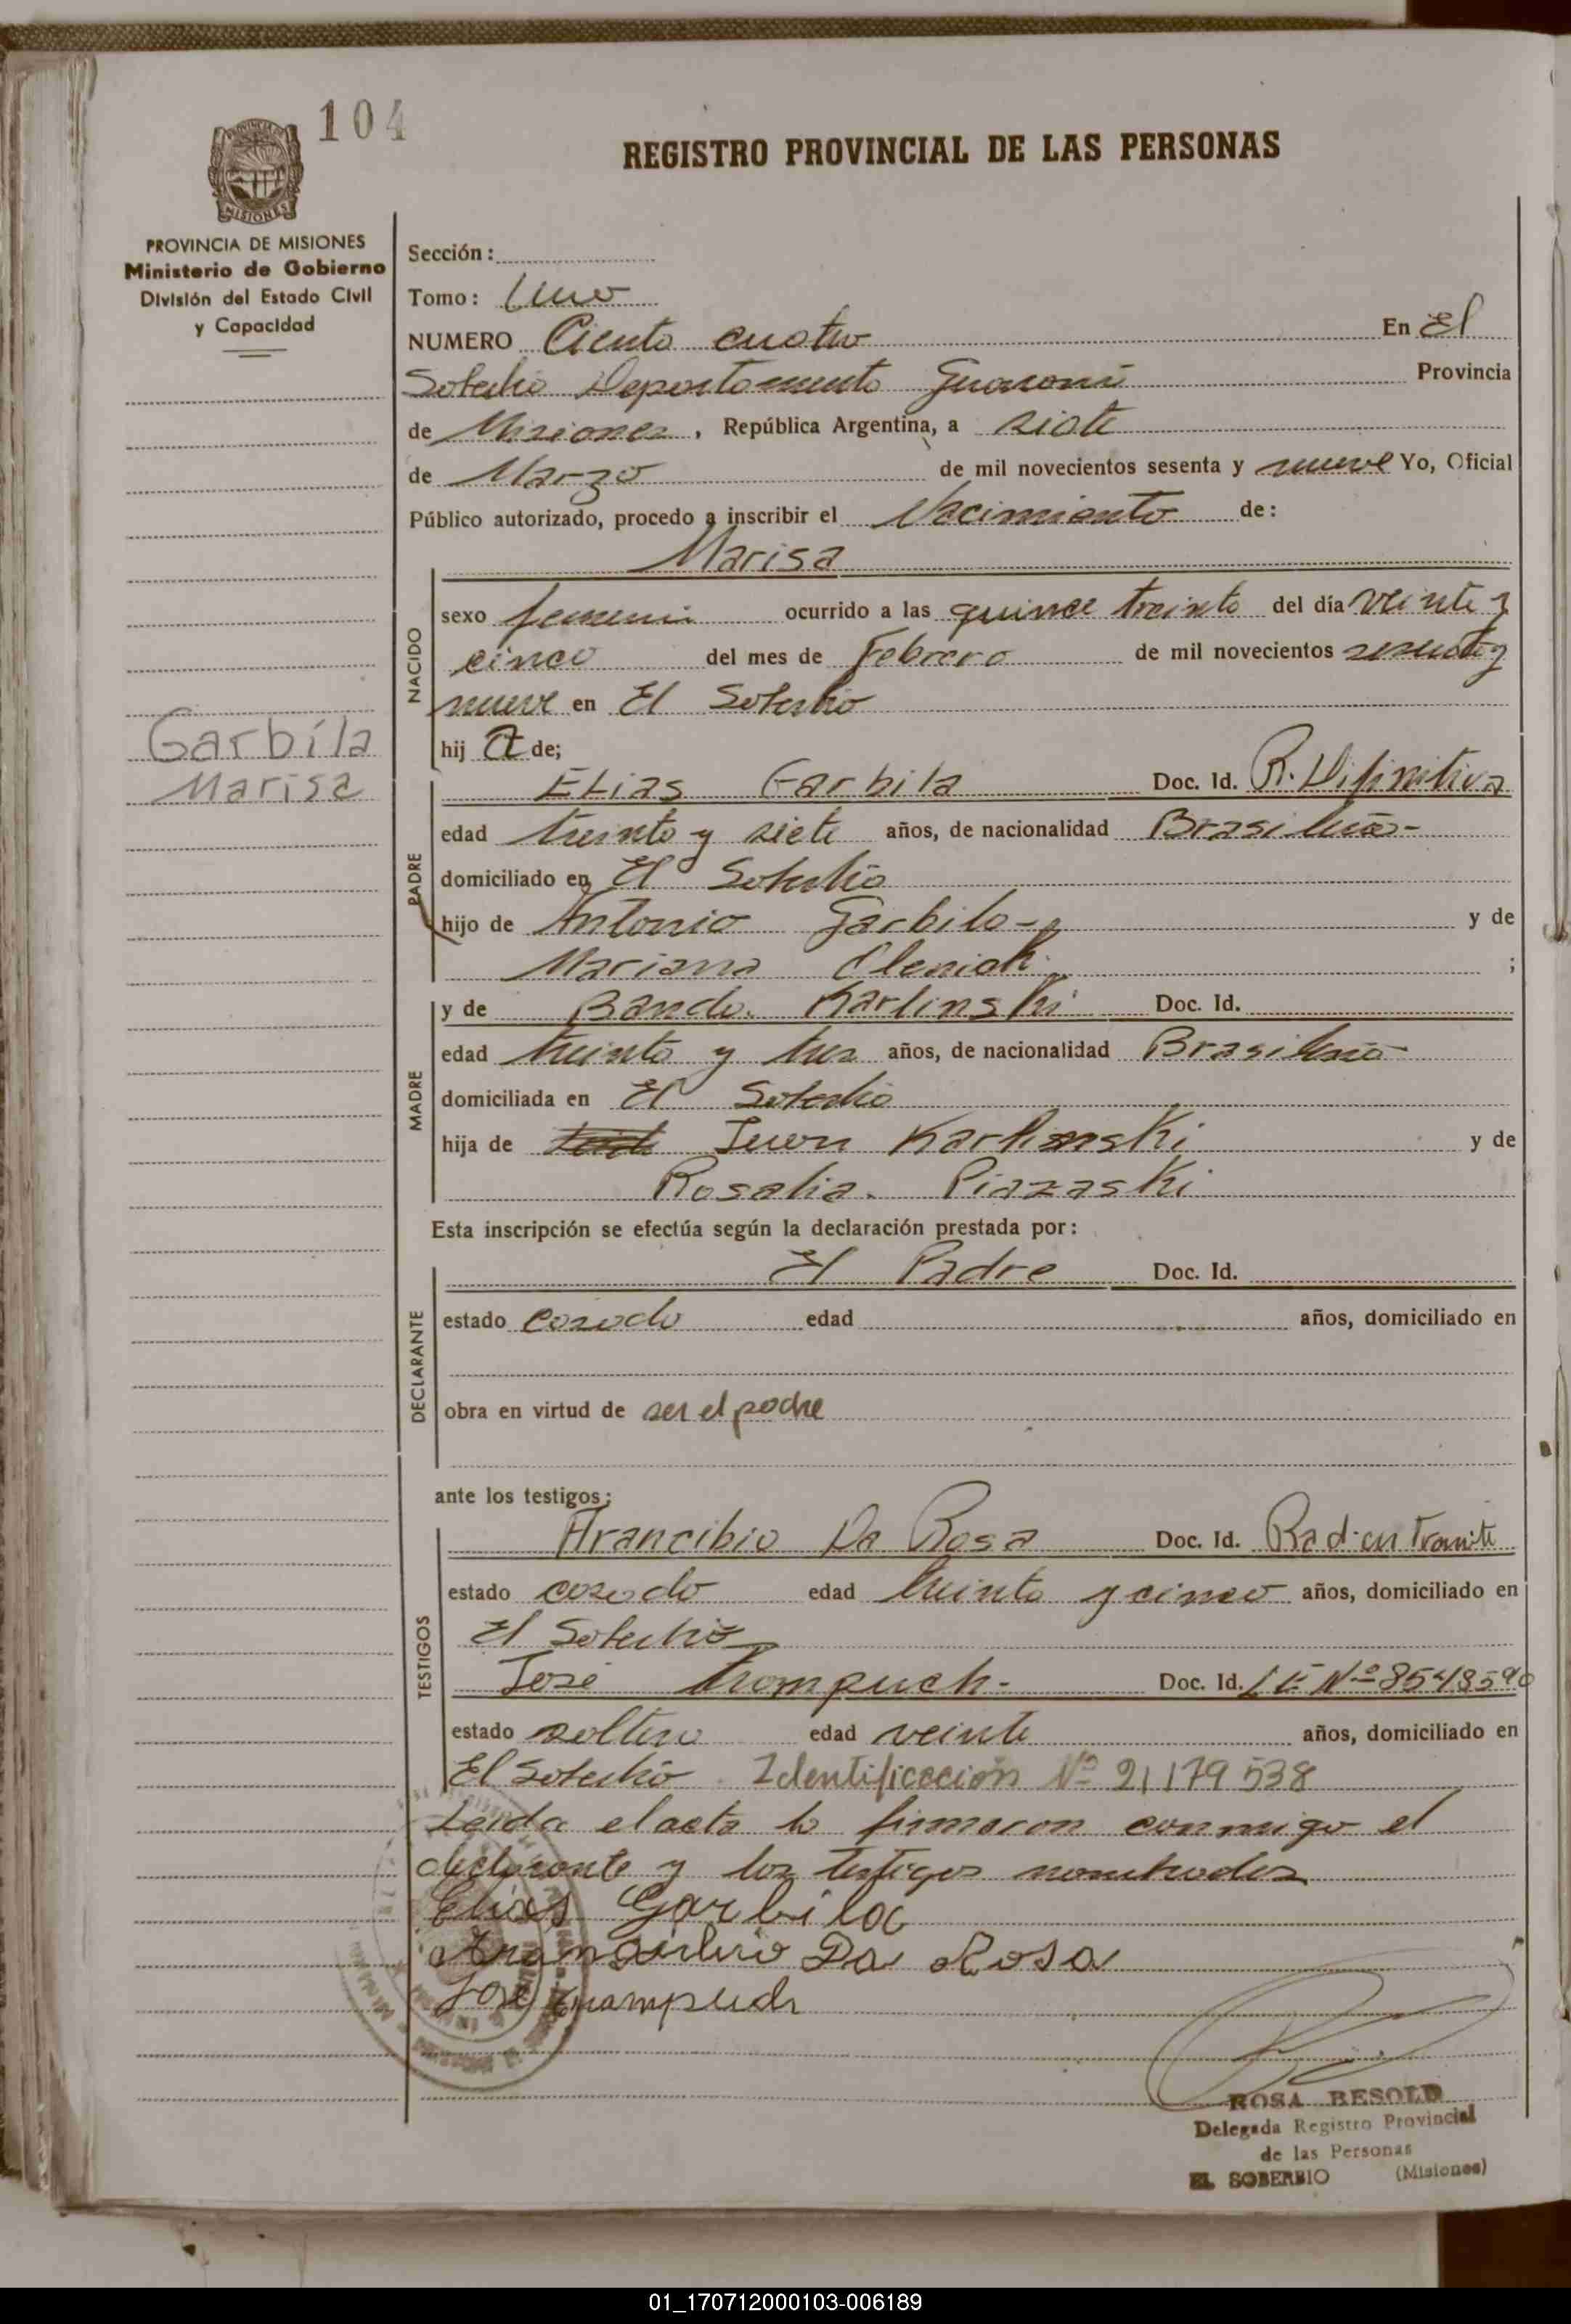 104
REGISTRO PROVINCIAL DE LAS PERSONAS
MISIONES
PROVINCIA DE MISIONES
Ministerio de Gobierno
División del Estado Civil
y Capacidad
Sección:
Tomo: Uno
NUMERO Ciento cuatro En El
Soberbio Departamento Guaraní Provincia
de Misiones, República Argentina, a siete
de Marzo de mil novecientos sesenta y nueve Yo, Oficial
Público autorizado, procedo a inscribir el Nacimiento de:
Marisa
NACIDO
sexo femenin ocurrido a las quince treinta del día veinte y
cinco del mes de Febrero de mil novecientos sesenta y
nueve en El Soberbio
Garbila
Marisa
hij a de;
PADRE
Elias Garbila Doc. Id. R. Difinitiva
edad treinta y siete años, de nacionalidad Brasileña-
domiciliado en El Soberbio
hijo de Antonio Garbila- y de
Mariana Oleniak ;
MADRE
y de Banda Karlinski Doc. Id.
edad treinta y tres años, de nacionalidad Brasileña
domiciliada en El Soberbio
hija de Juan Karlinski y de
Rosalia Piazaski
Esta inscripción se efectúa según la declaración prestada por:
DECLARANTE
El Padre Doc. Id.
estado casado edad años, domiciliado en
obra en virtud de ser el padre
ante los testigos:
TESTIGOS
Arancibio Da Rosa Doc. Id. Rad. en Tramite
estado casado edad treinta y cinco años, domiciliado en
El Soberbio
José Trompuch- Doc. Id. L E Nº 8548590
estado soltero edad veinte años, domiciliado en
El Soberbio. Identificación Nº 21179538
Leida el acta la firmaron conmigo el
declarante y los testigos nombrados
Elias Garbila
Da Rosa
José
ROSA BESOLD
Delegada Registro Provincial
de las Personas
EL SOBERBIO (Misiones)
01_170712000103-006189